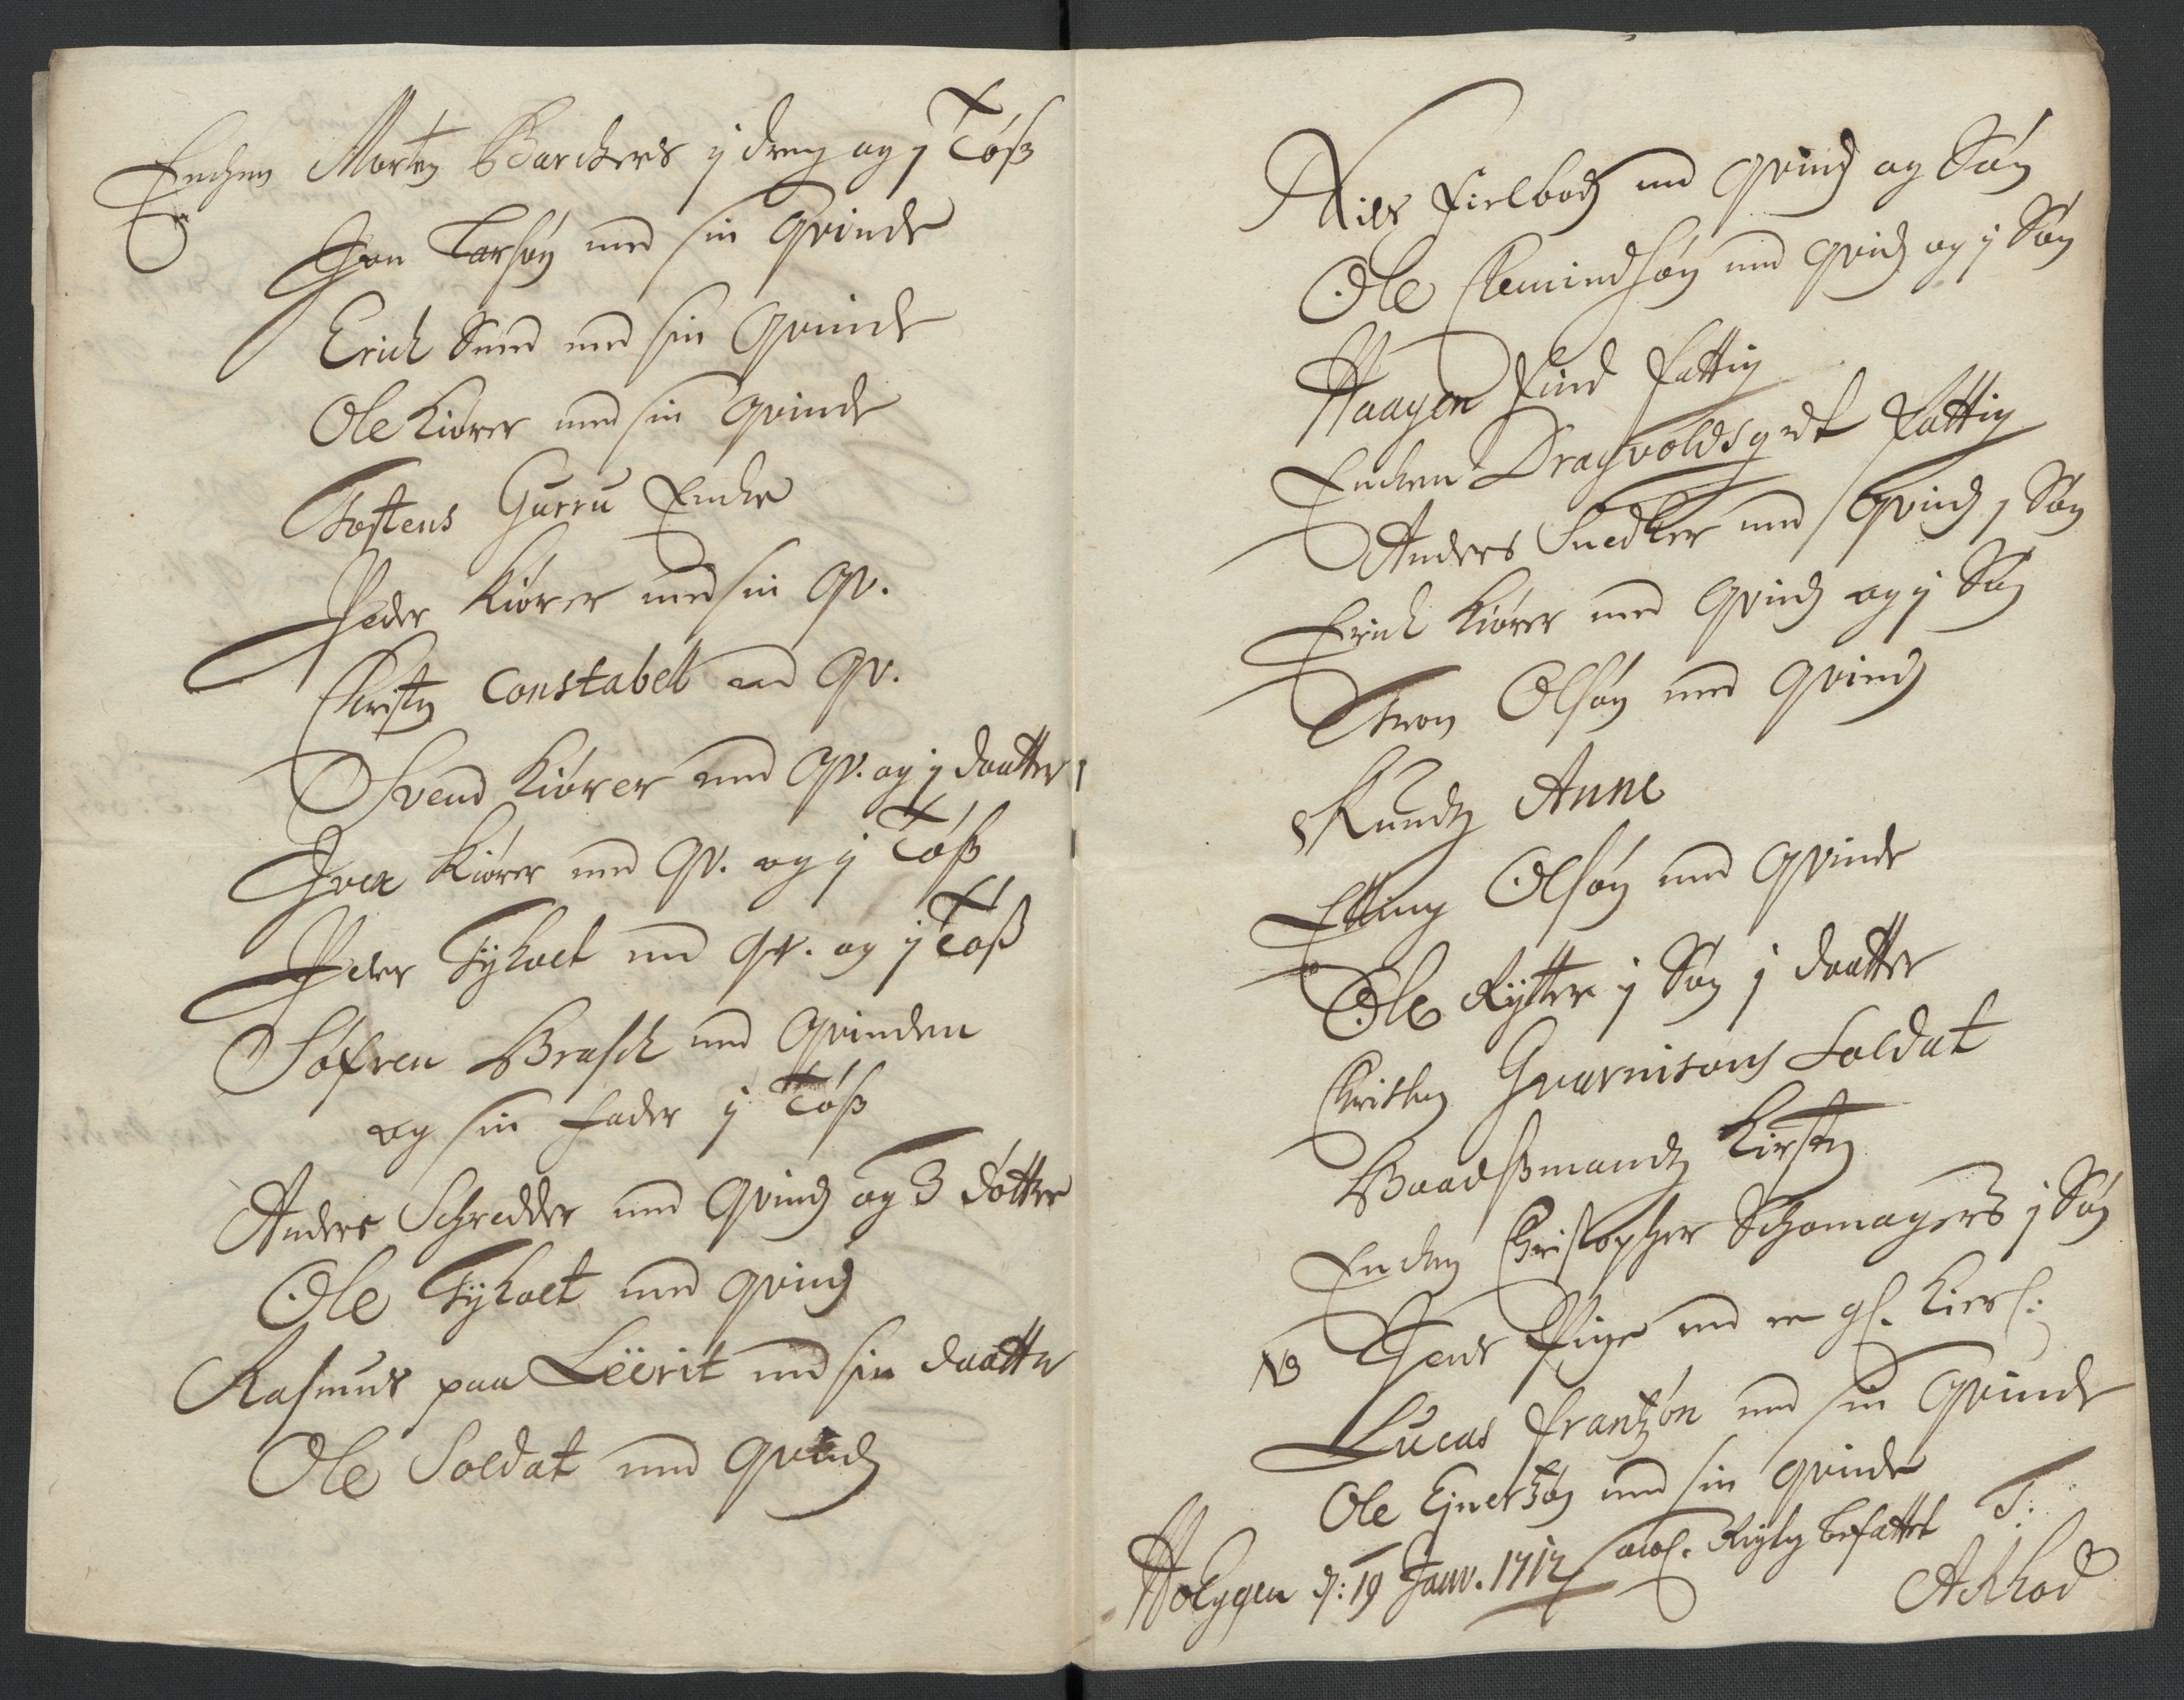 Enchen Morten Barchers j dreng og j Tøß
Jon Larsøn med sin Qvinde
Erich Smed med sin Qvinde
Ole Kiører med sin Qvinde
Tostens Gurru Encke
Peder Kiører med sin qv.
Christen Constabel med qv.
Svend Kiører med qv. og j daatter
Iver Kiører med qv. og j Tøß
Peder Tyholt med qv. og j Tøß
Søfren Brasch med Qvinden
og sin fader j Tøß
Anders Schredder med Qvinde og 3 døttre
Ole Tyholt med qvinde
Rasmus paa Leërit med sin daatter
Ole Soldat med qvinde
Niels fielbod med qvinde og Søn
Ole Clemindsøn med qvinde og j Søn
Haagen find fattig
Encken Dragvolds fattig
Anders Snedker med qvinde j Søn
Erich Kiører med Qvinde og j Søn
Tron Olsøn med qvinde
Knudtz Anne
Elling Olsøn med qvinde
Ole Rytter j Søn j daatter
Christen Gvarnisons Soldat
Baadßmandtz Kirsten
Encken Christopher Schomagers j Søn
NB Jens Pige med en gl. Kierl:
Lucas frantzøn med sin Qvinde
Ole Ejnertzøn med sin qvinde
d: 19 Janv. 1712 Rigtig befattet T: